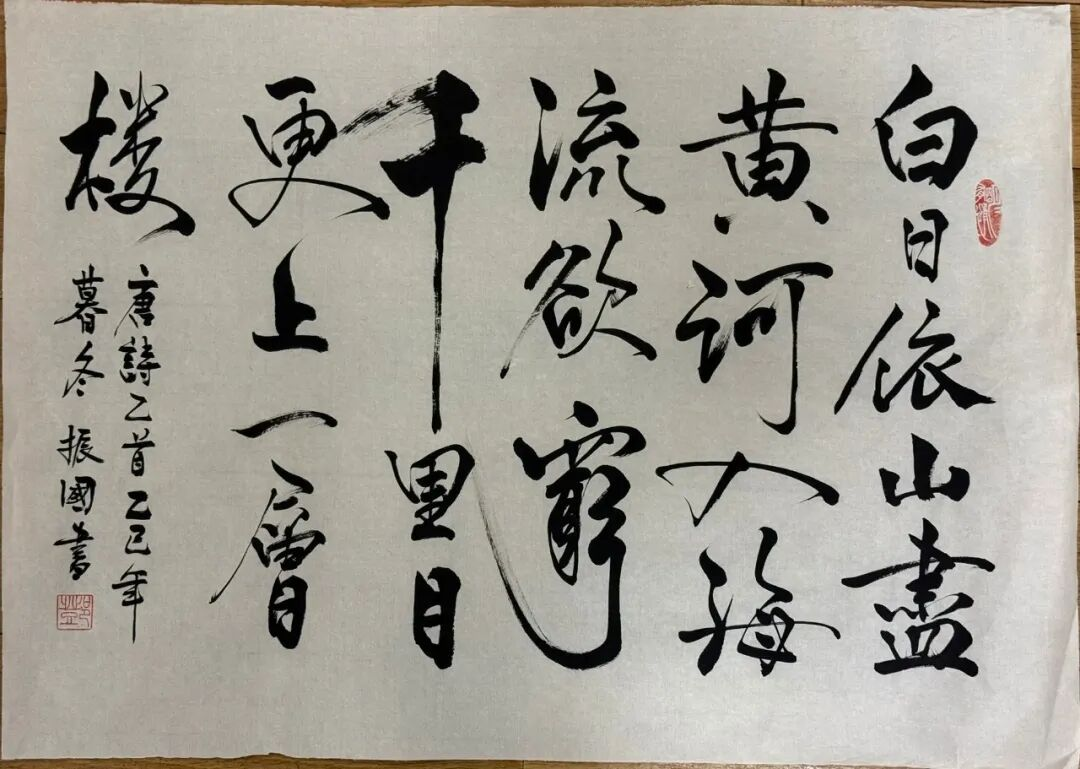 白日依山盡
黄河入海
流欲窮
千里目
更上一層
楼
唐詩乙首乙巳年
暮冬振國書